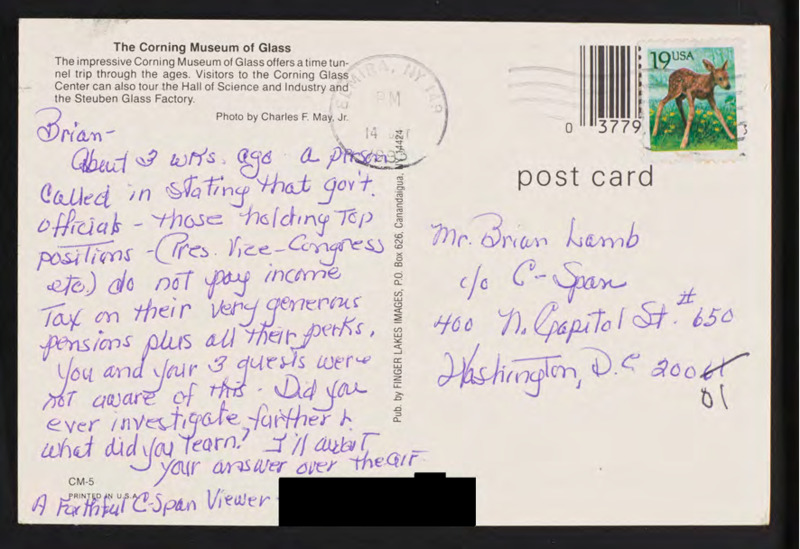 The Corning Museum of Glass
The impressive Corning Museum of Glass offers a time tun-
nel trip through the ages. Visitors to the Corning Glass
Center can also tour the Hall of Science and Industry and
the Steuben Glass Factory.
Photo by Charles F. May, Jr.
Brian-
About 3 wks. ago a person
called in stating that gov't.
officials - those holding top
positions - (Pres. Vice-Congress
etc.) do not pay income
Tax on their very generous
pensions plus all their perks.
You and your 3 guests were
not aware of this. Did you
ever investigate further &
what did you learn? I'll await
your answer over the air
CM-5
PRINTED IN U.S.A.
A Faithful C-Span Viewer
Pub. by FINGER LAKES IMAGES, P.O. Box 626, Canandaigua, 14424
ELMIRA, NY
PM
14
19 USA
0 3779
post card
Mr. Brian Lamb
c/o C-Span
400 N. Capitol St. #650
Washington, D.C 200
01